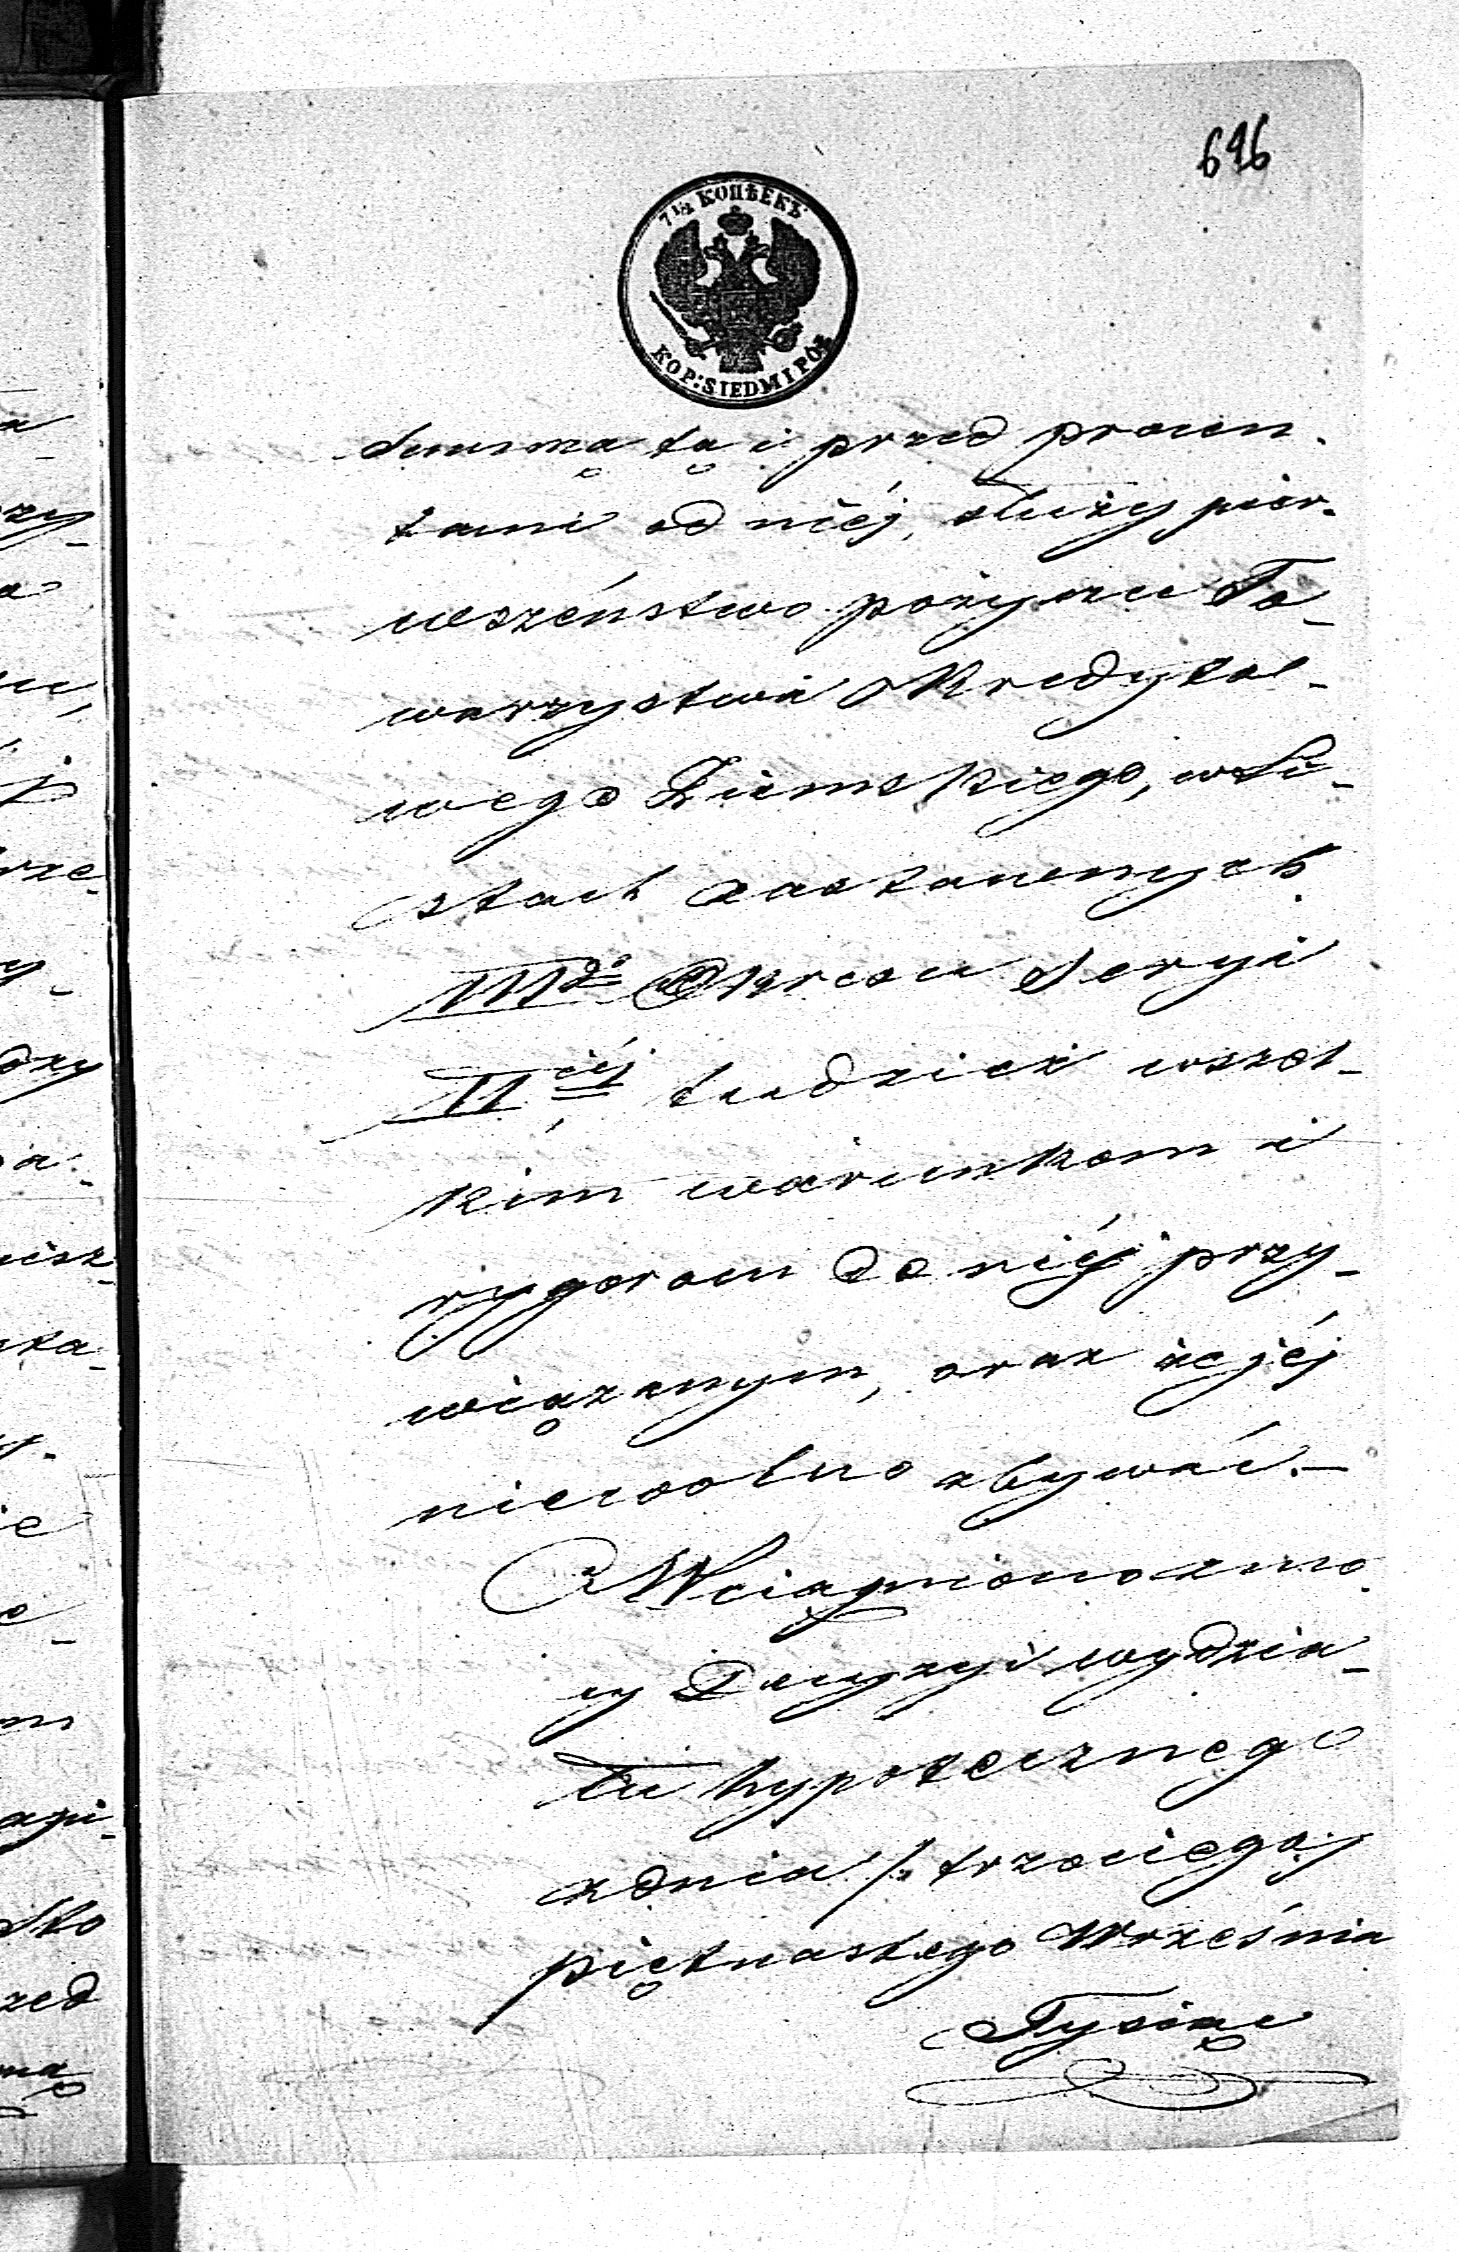 696
7½ КОПѢЕКЪ
KOP: SIEDM I PÓŁ
summą tą i przed procen-
tami od niéj, służy pier-
wszeństwo pożyczce To-
warzystwa Kredyto-
wego Ziemskiego, w Li-
stach zastawnych
III° Okresu Seryi
II éj, tudzież wszel-
kim warunkom i
rygorom do niéj przy-
wiązanym, oraz że jéj
niewolno zbywać.—
Wciągniono z mo-
cy Decyzyi wydzia-
łu hypotecznego
z dnia /: trzeciego/
piętnastego Września
Tysiąc